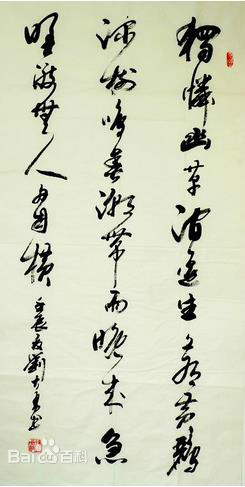 獨憐幽草澗邊生上有黃鸝
深樹鳴春潮帶雨晚來急
野渡無人舟自橫
壬辰 劉 書
Baidu百科